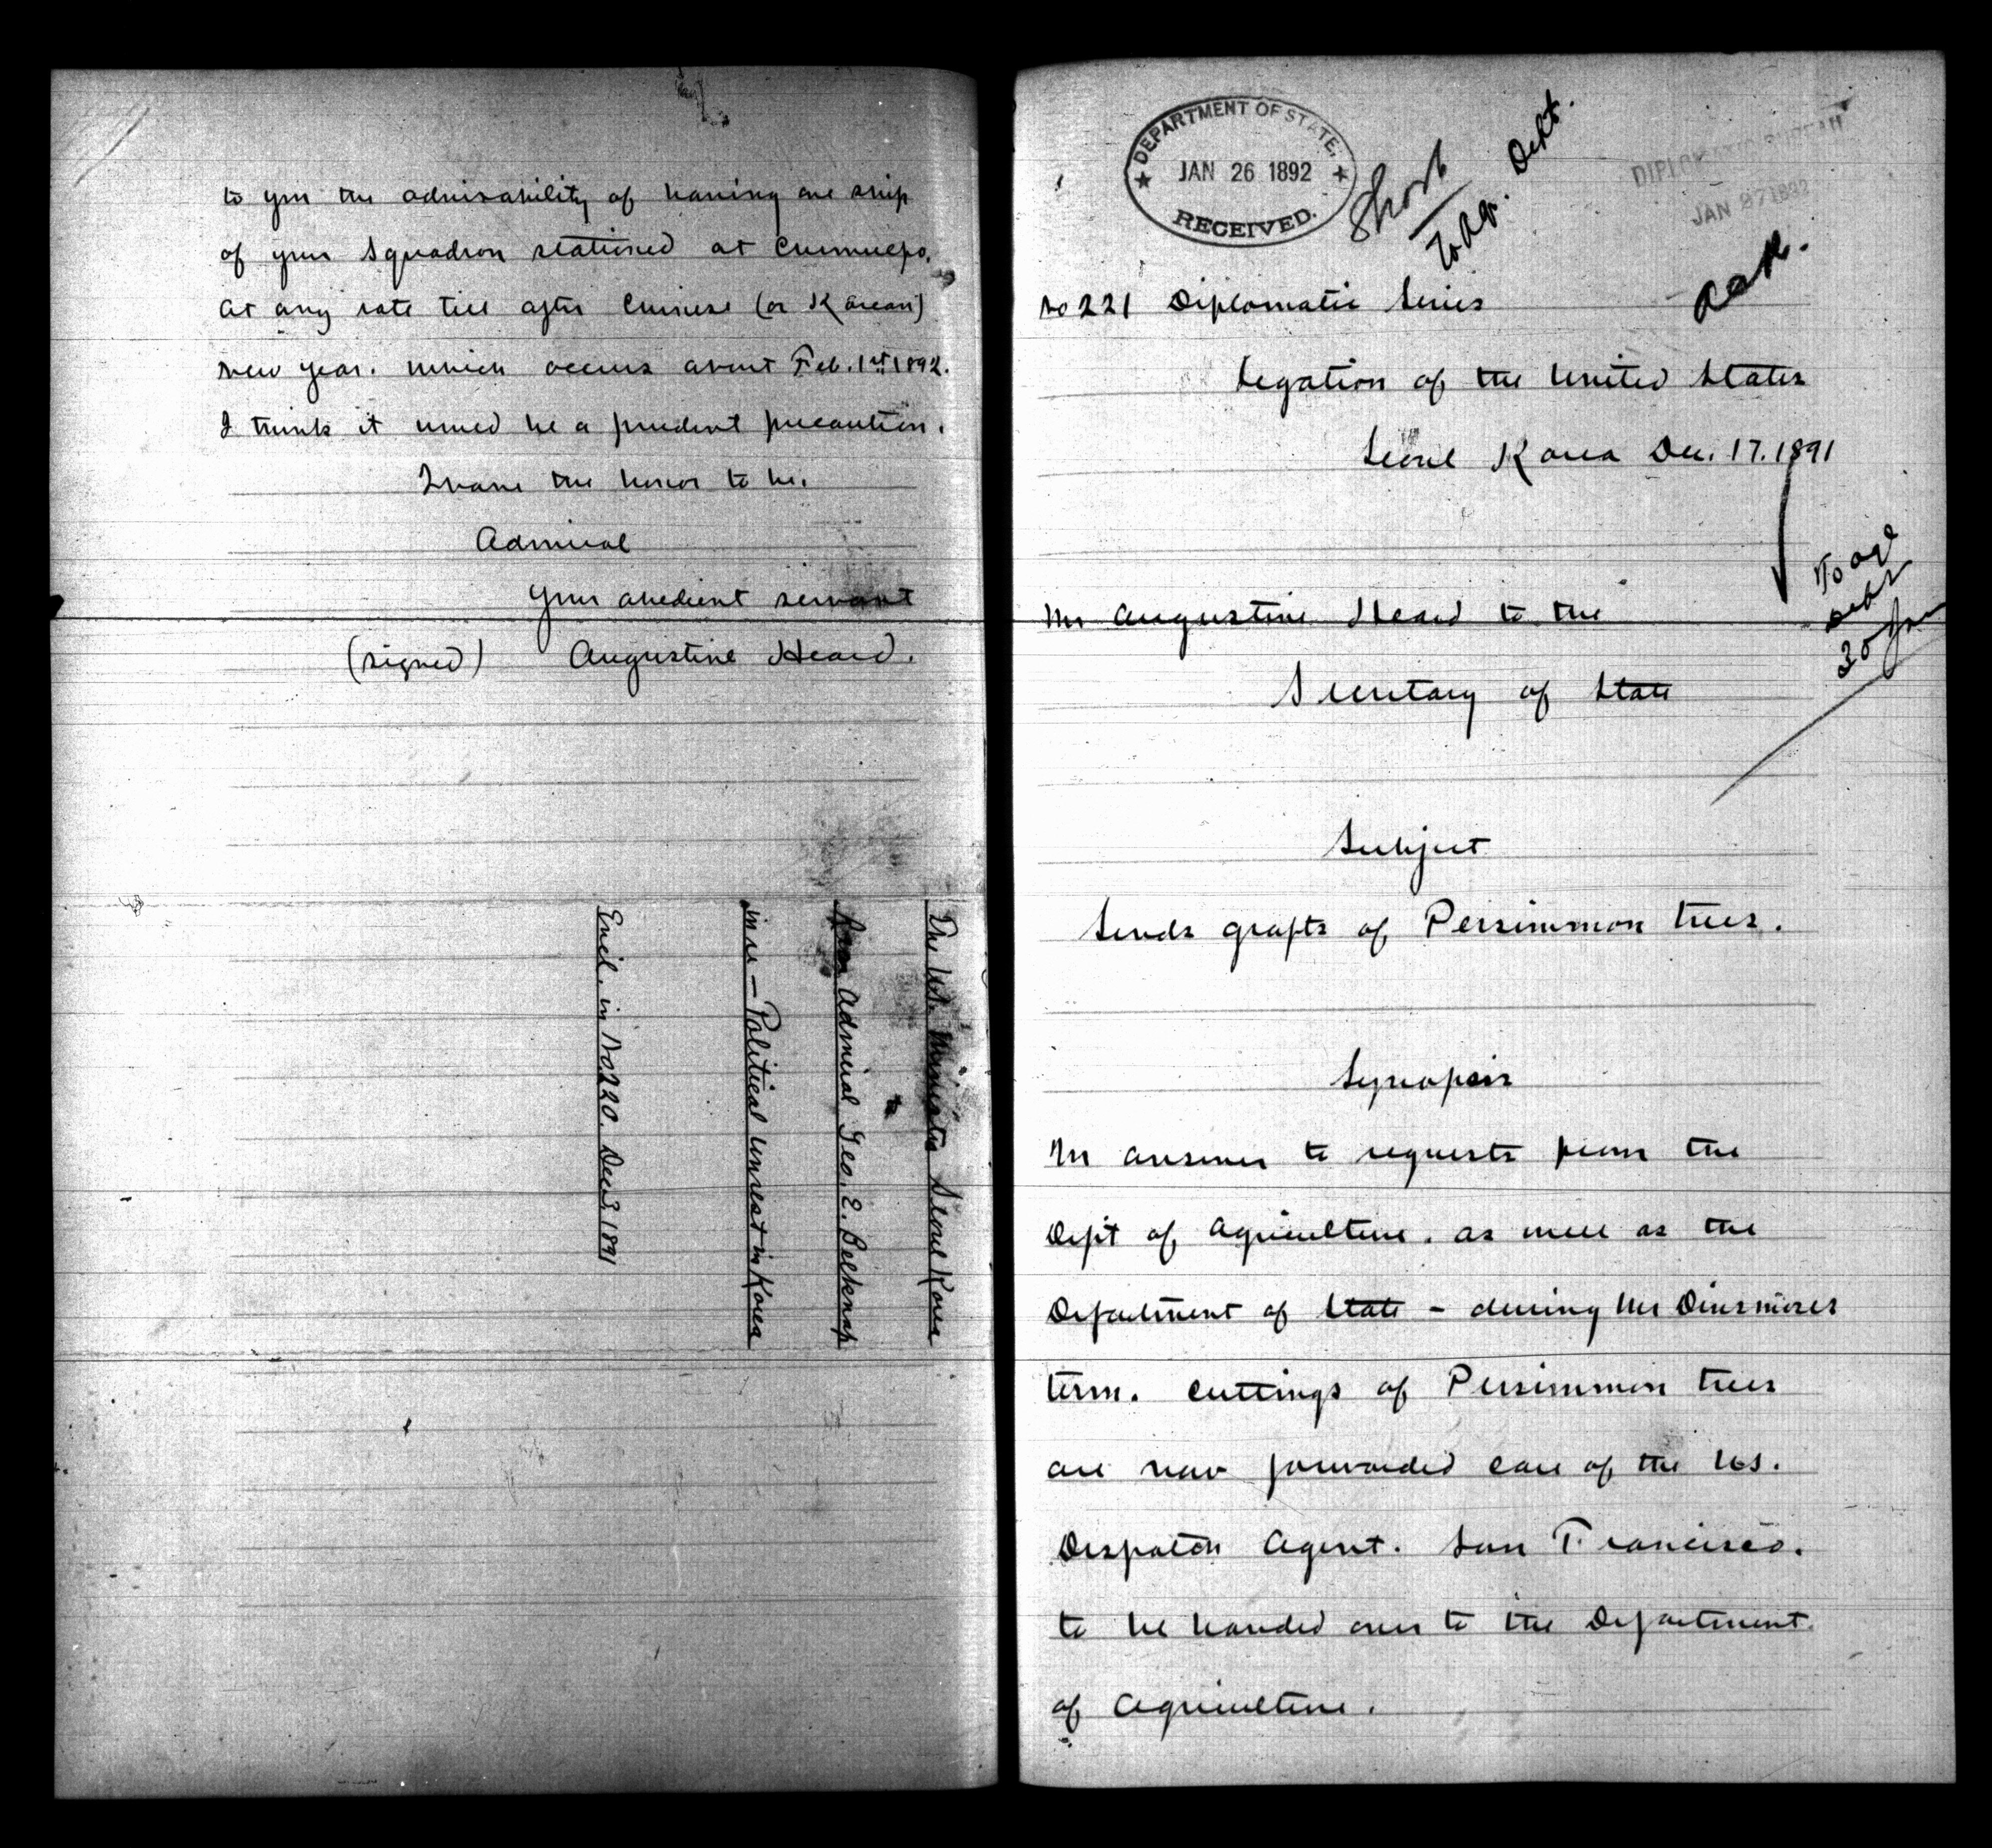 to you the advisability of having one ship
of your Squadron stationed at Chemulpo.
at any rate till after Chinese (or Korean)
new year. which occurs about Feb. 1st 1892.
I think it would be a prudent precaution.
I have the honor to be.
Admiral
Your obedient servant
(signed) Augustine Heard.
The U.S. Minister Seoul Korea
to
Rear Admiral Geo. E. Belknap
in re - Political unrest in Korea
Encl. in No 220. Dec 3 1891
DEPARTMENT OF STATE,
JAN 26 1892
RECEIVED.
Short
To Ag. Dept.
DIPLOMATIC BUREAU
JAN 27 1892
Ack.
No 221 Diplomatic Series
Legation of the United States
Seoul Korea Dec. 17. 1891
To Ag
Dept
30 Jan
Mr Augustine Heard to the
Secretary of State
Subject
Sends grafts of Persimmon trees.
Synopsis
In answer to requests from the
Dep't of Agriculture. as well as the
Department of State - during Mr Dinsmores
term. cuttings of Persimmon trees
are now forwarded care of the U.S.
Despatch Agent. San Francisco.
to be handed over to the Department.
of Agriculture.